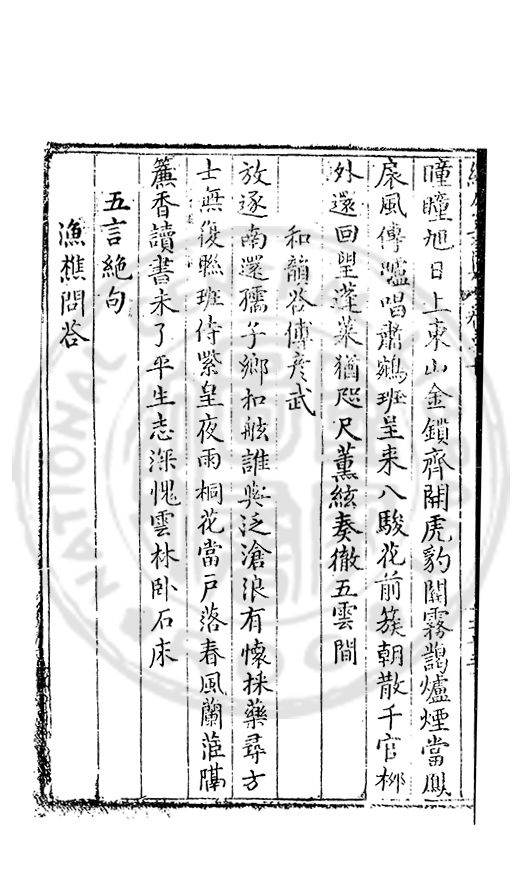 曈曨旭日上東山金鎖齊開虎豹關霧靄爐煙當鳳
扆風傳臚唱肅鵷班呈来八駿花前簇朝散千官柳
外還回望蓬萊猶咫尺薰絃奏徹五雲間
和韻答傅彦武
放逐南還孺子鄉扣舷誰與泛滄浪有懷採藥尋方
士無復聮班侍紫皇夜雨桐花當戸落春風蘭茝隔
簾香讀書未了平生志深愧雲林卧石床
五言絶句
漁樵問答
NATIONAL CENTRAL